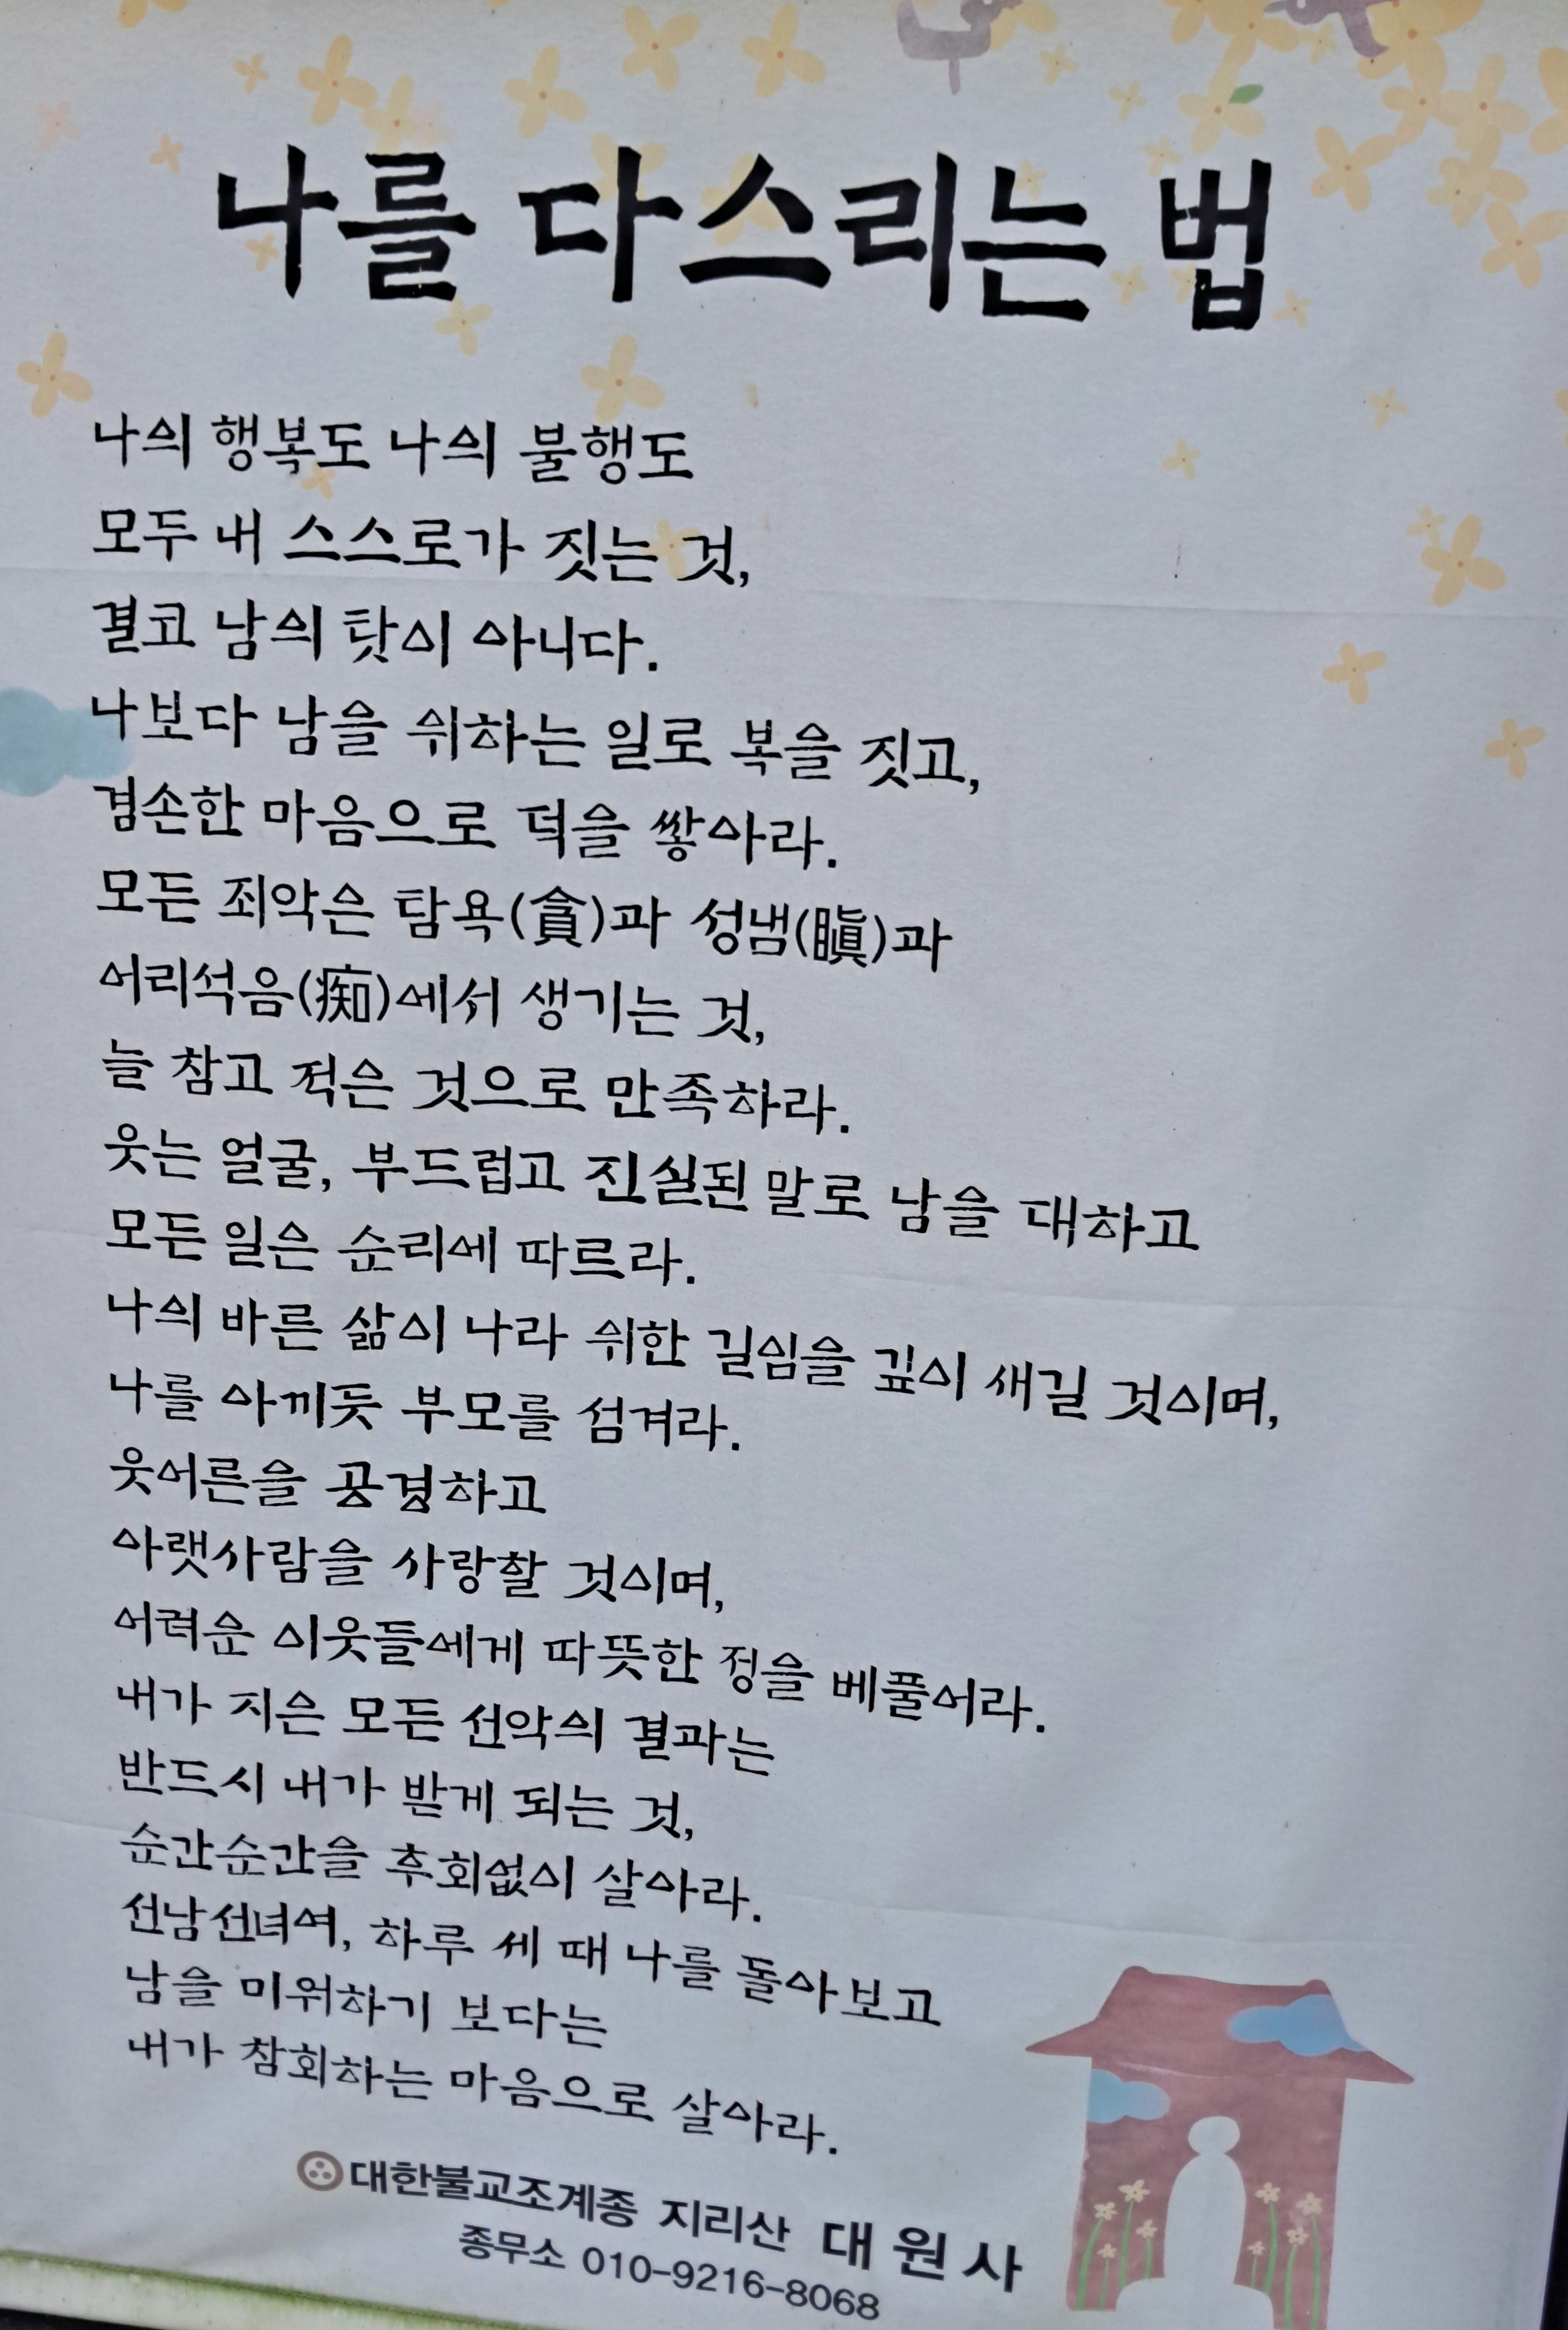 나를 다스리는 법
나의 행복도 나의 불행도
모두 내 스스로가 짓는 것,
결코 남의 탓이 아니다.
나보다 남을 위하는 일로 복을 짓고,
겸손한 마음으로 덕을 쌓아라.
모든 죄악은 탐욕(貪)과 성냄(瞋)과
어리석음(痴)에서 생기는 것,
늘 참고 적은 것으로 만족하라.
웃는 얼굴, 부드럽고 진실된 말로 남을 대하고
모든 일은 순리에 따르라.
나의 바른 삶이 나라 위한 길임을 깊이 새길 것이며,
나를 아끼듯 부모를 섬겨라.
웃어른을 공경하고
아랫사람을 사랑할 것이며,
어려운 이웃들에게 따뜻한 정을 베풀어라.
내가 지은 모든 선악의 결과는
반드시 내가 받게 되는 것,
순간순간을 후회없이 살아라.
선남선녀여, 하루 세 때 나를 돌아보고
남을 미워하기 보다는
내가 참회하는 마음으로 살아라.
대한불교조계종 지리산 대원사
종무소 010-9216-8068